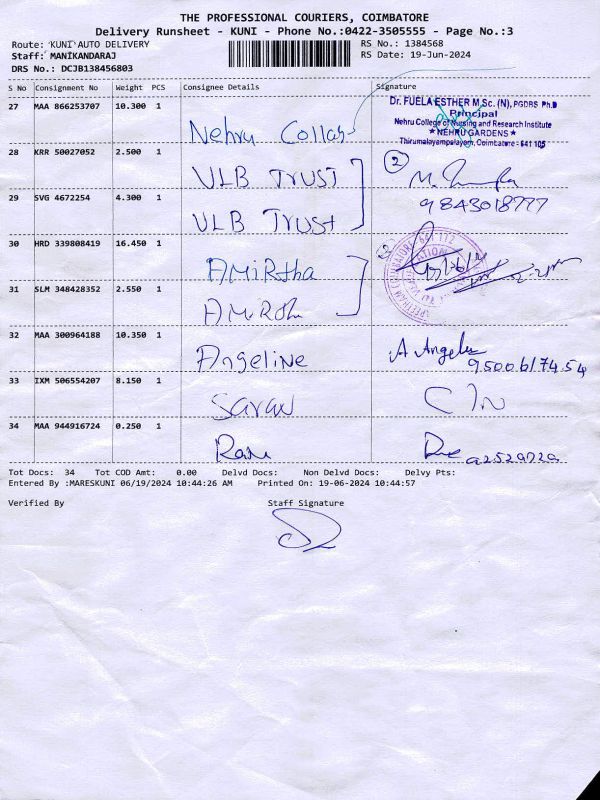 THE PROFESSIONAL COURIERS, COIMBATORE
Delivery Runsheet - KUNI - Phone No.:0422-3505555 - Page No.:3
Route: 'KUNI'AUTO DELIVERY
RS No.: 1384568
Staff: MANIKANDARAJ
RS Date: 19-Jun-2024
DRS No.: DCJB138456803
S No Consignment No Weight PCS Consignee Details Signature
27 MAA 866253707 10.300 1
Dr. FUELA ESTHER M.Sc. (N), PGDRS Ph.D
Principal
Nehru College of Nursing and Research Institute
★ NEHRU GARDENS ★
Thirumalayampalayam, Coimbatore - 641 105
Nehru Collage
28 KRR 50027052 2.500 1
VLB TRUST
2
29 SVG 4672254 4.300 1
VLB TruSt
9843018777
30 HRD 339808419 16.450 1
AMiRtha
31 SLM 348428352 2.550 1
32 MAA 300964188 10.350 1
Angeline
A Angeline
33 IXM 506554207 8.150 1
Saran
34 MAA 944916724 0.250 1
Tot Docs: 34 Tot COD Amt: 0.00 Delvd Docs: Non Delvd Docs: Delvy Pts:
Entered By :MARESKUNI 06/19/2024 10:44:26 AM Printed On: 19-06-2024 10:44:57
Verified By Staff Signature